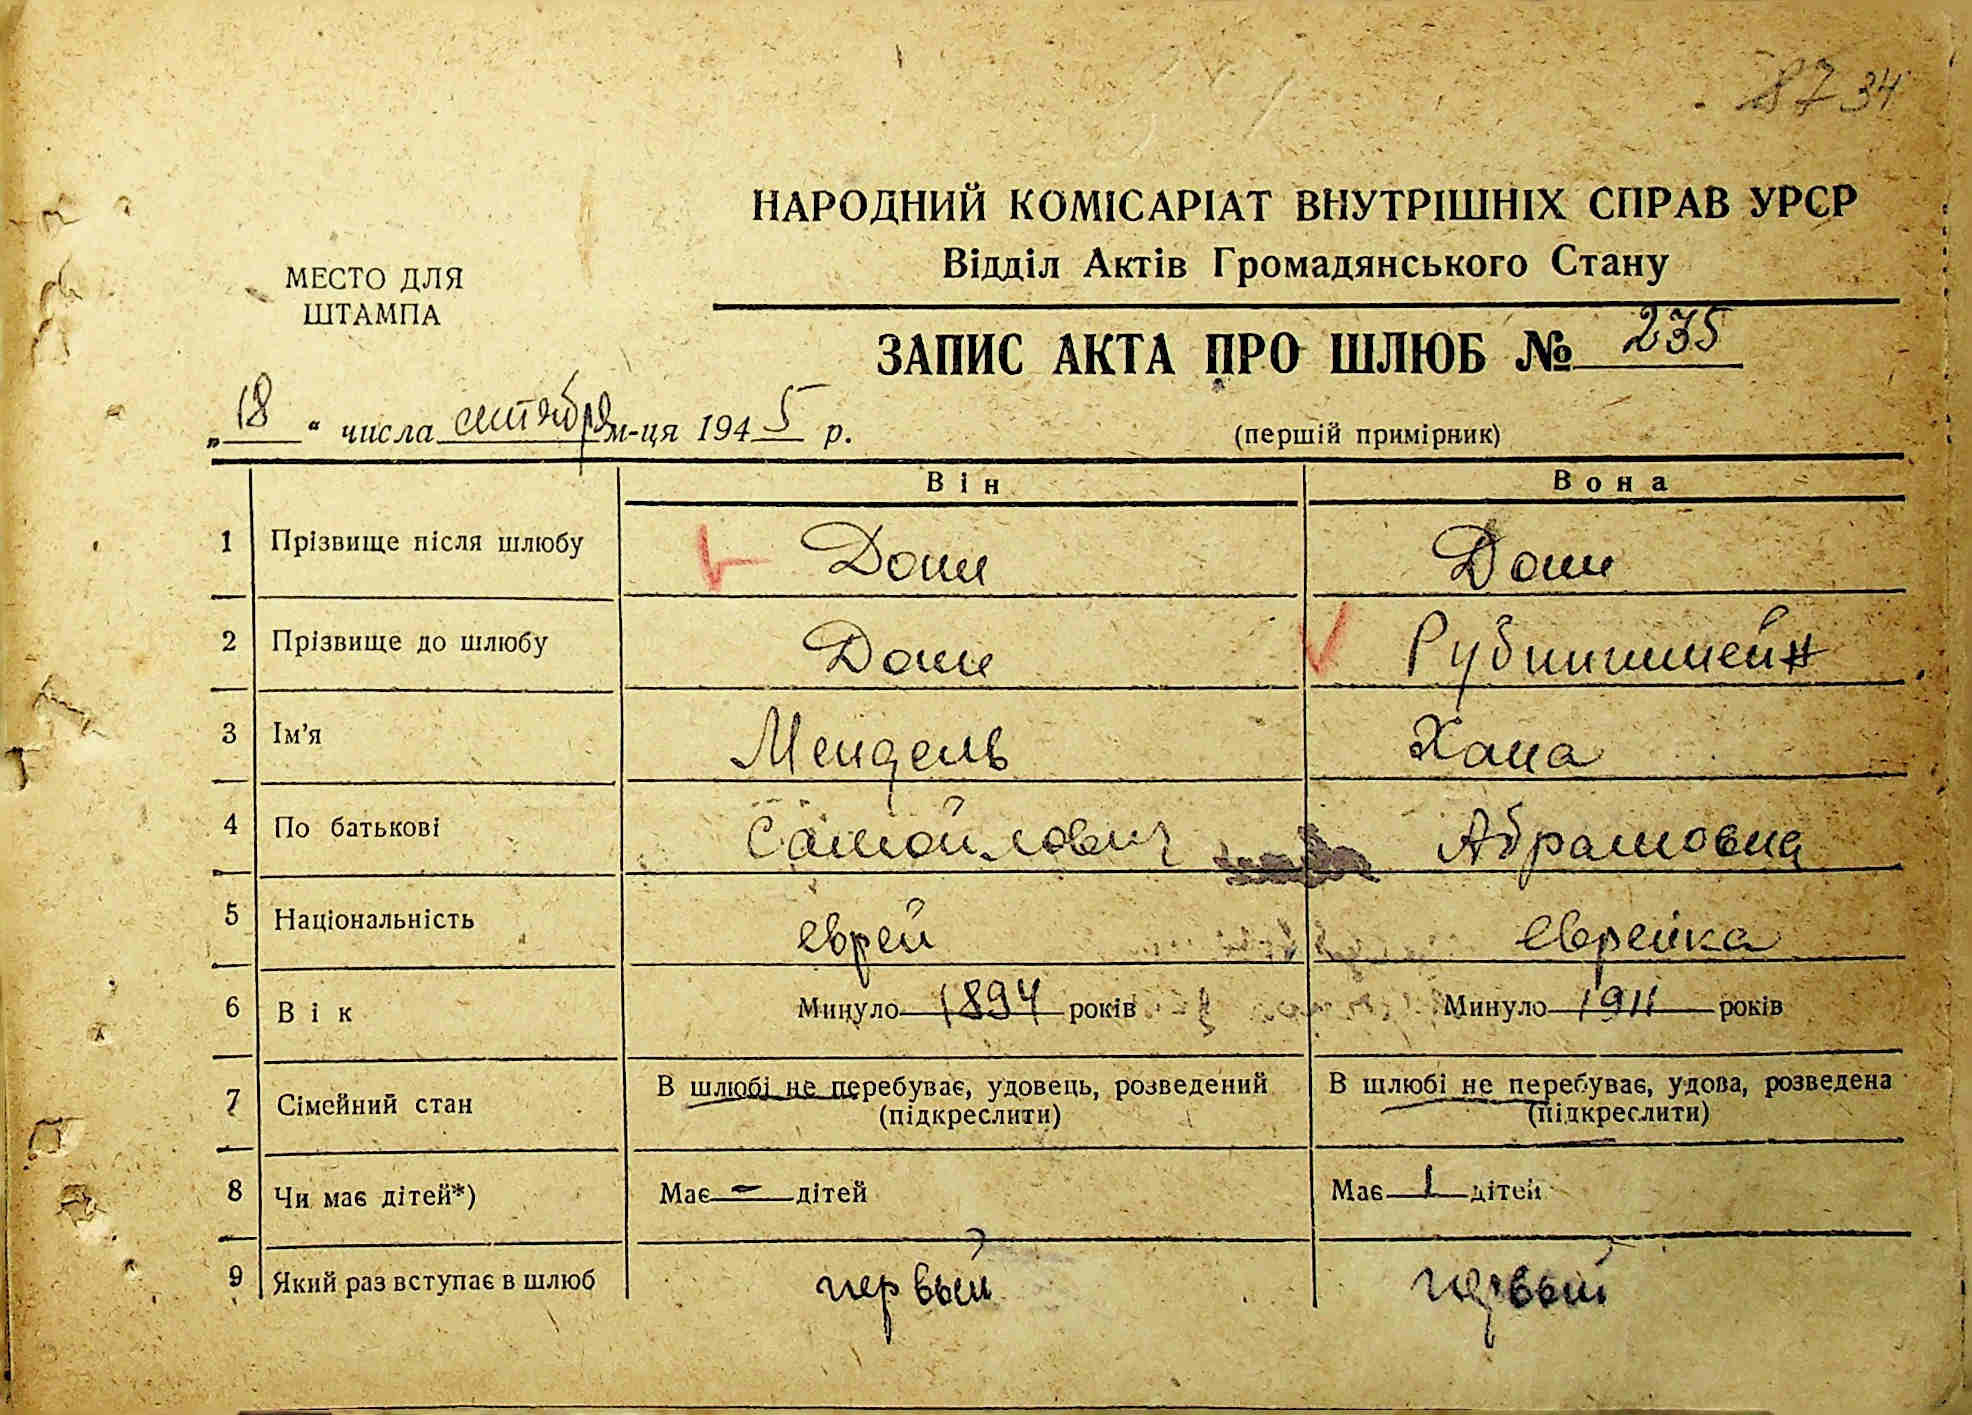 87 34
НАРОДНИЙ КОМІСАРІАТ ВНУТРІШНІХ СПРАВ УРСР
Відділ Актів Громадянського Стану
МЕСТО ДЛЯ
ШТАМПА
ЗАПИС АКТА ПРО ШЛЮБ № 235
„18“ числа сентября м-ця 1945 р.
(першій примірник)
Він Вона
1 Прізвище після шлюбу Дони Дони
2 Прізвище до шлюбу Дони Рубинштейн
3 Ім’я Мендель Хана
4 По батькові Самойлович Абрамовна
5 Національність еврей еврейка
6 Вік Минуло 1894 років Минуло 1911 років
7 Сімейний стан В шлюбі не перебуває, удовець, розведений В шлюбі не перебуває, удова, розведена
(підкреслити) (підкреслити)
8 Чи має дітей*) Має — дітей Має 1 дітей
9 Який раз вступає в шлюб первый первый